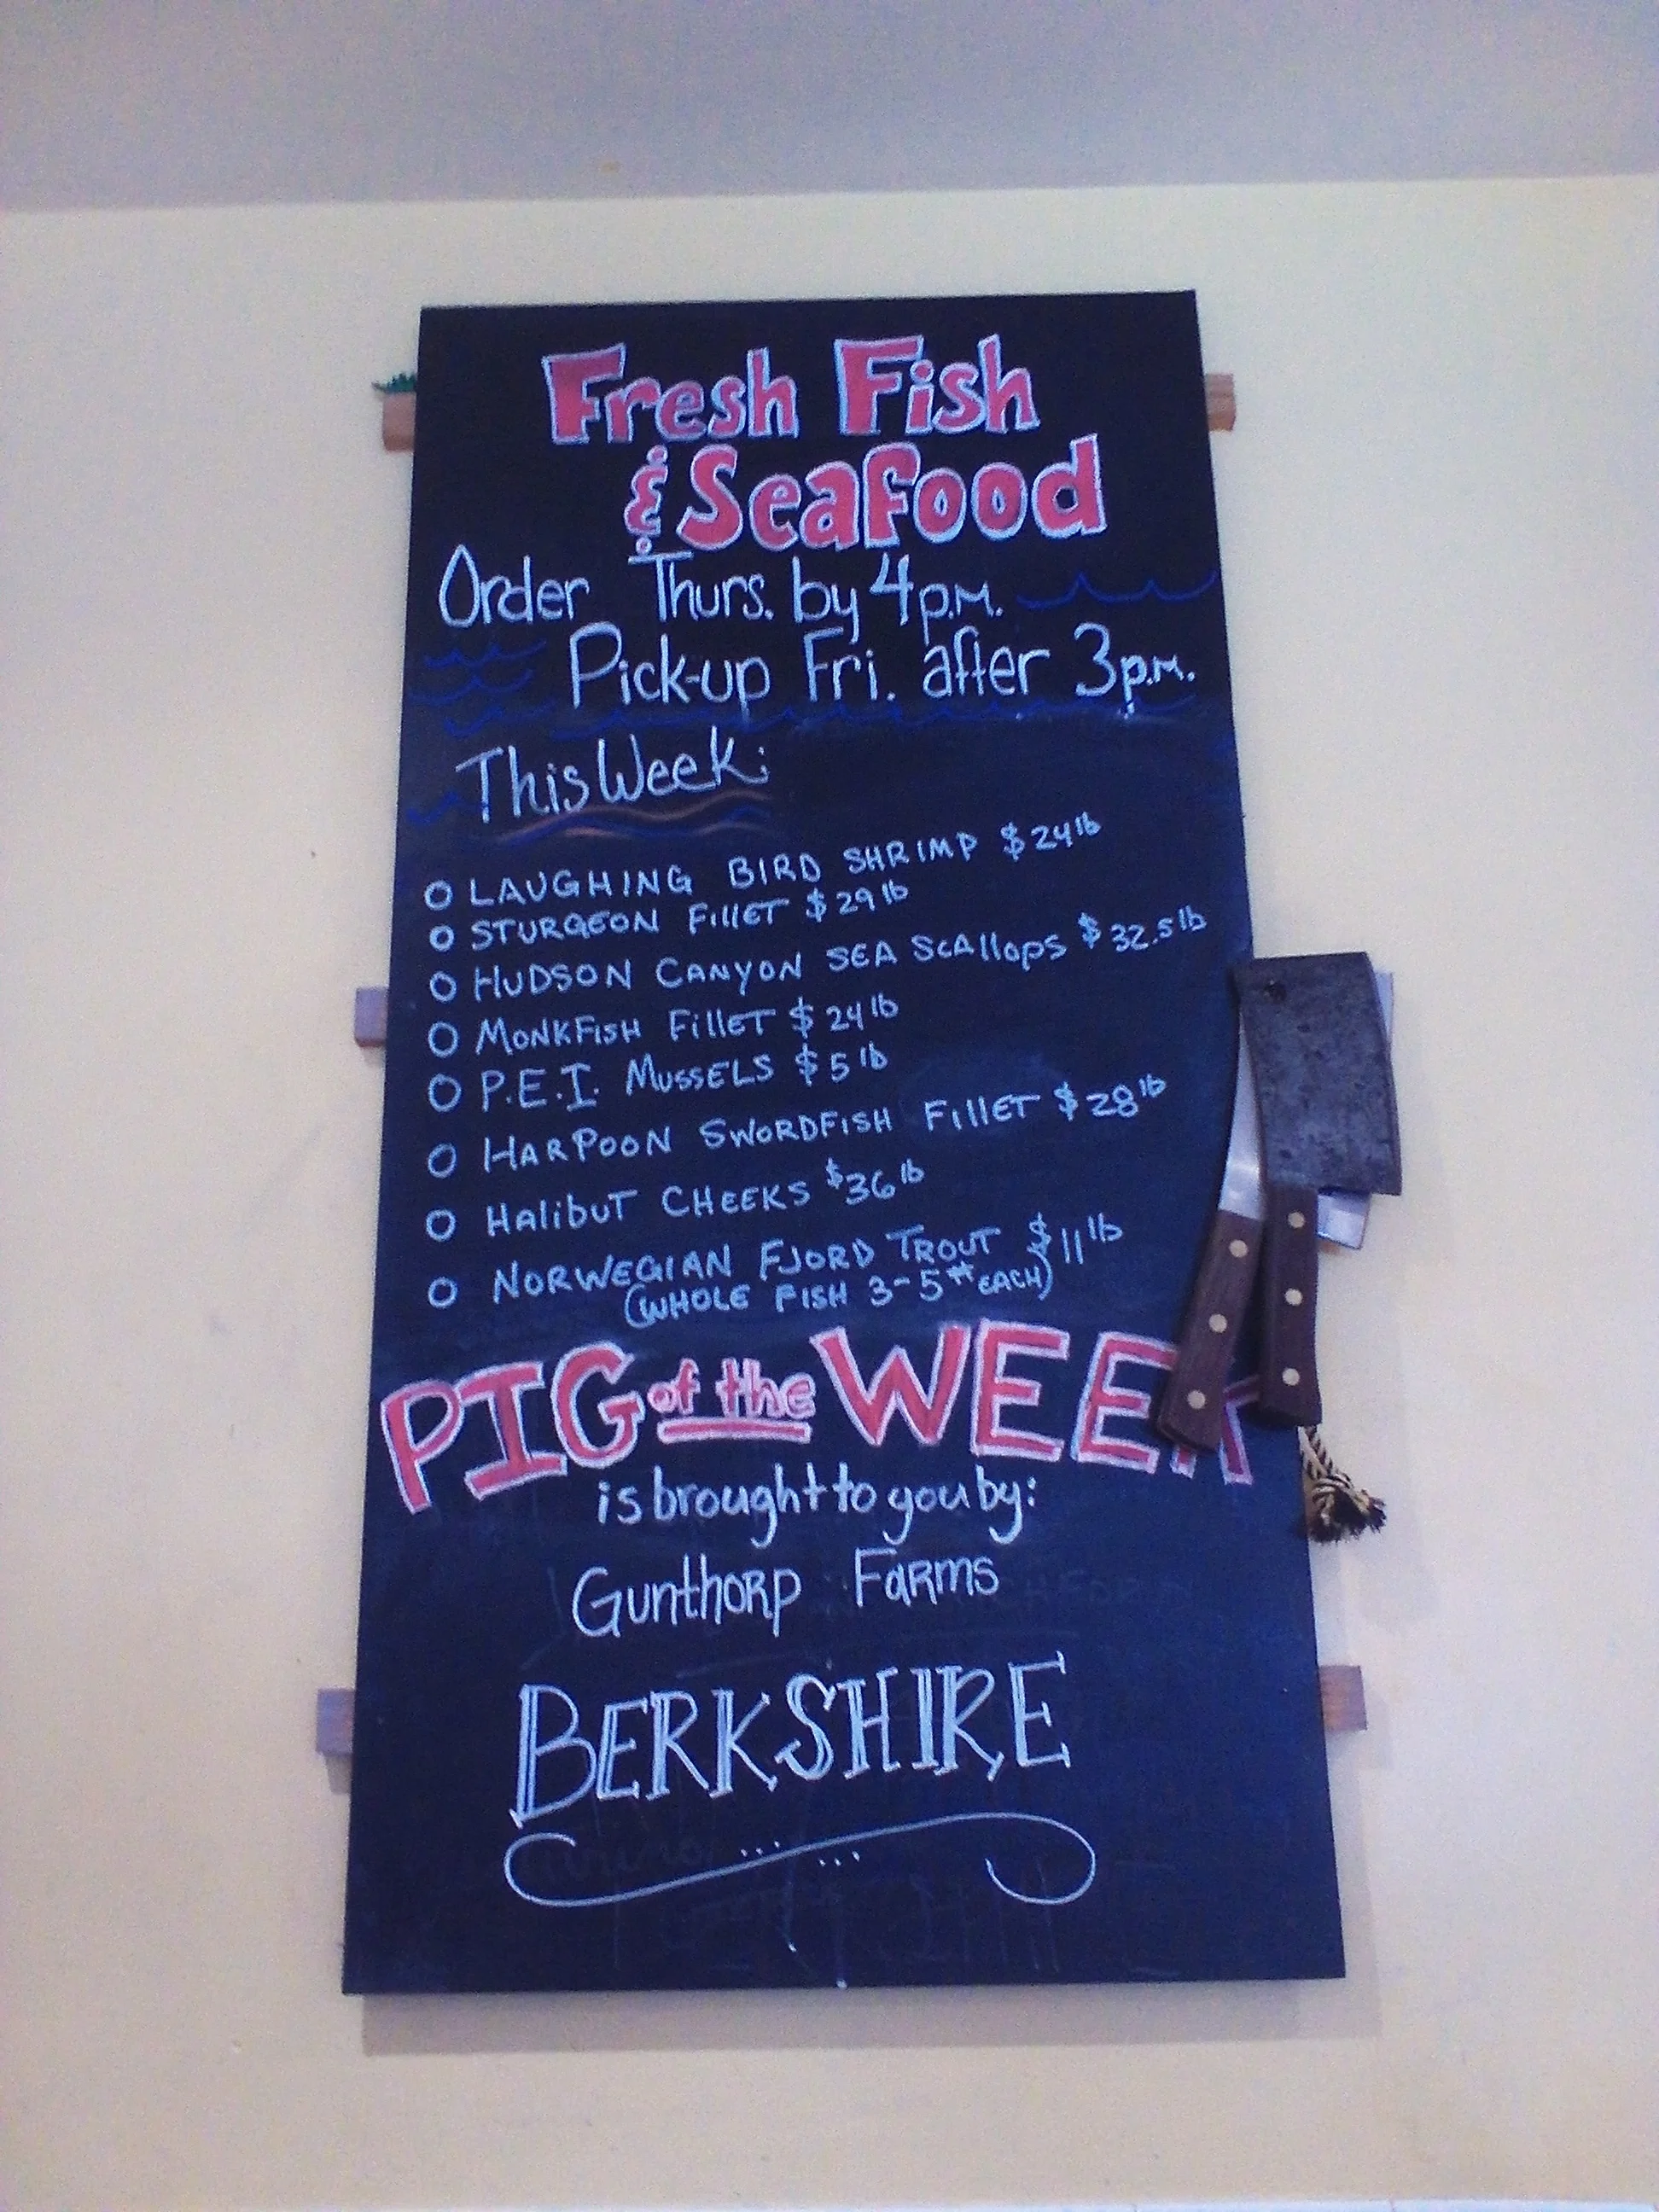 Fresh Fish
& Seafood
Order Thurs. by 4p.m.
Pick-up Fri. after 3p.m.
This Week:
O LAUGHING BIRD SHRIMP $24lb
O STURGEON FIllET $29lb
O HUDSON CANYON SEA SCAllOPS $32.5lb
O MONKFISH FIllET $24lb
O P.E.I. MUSSELS $5lb
O HARPOON SWORDFISH FIllET $28lb
O HAlibUT CHEEKS $36lb
O NORWEGIAN FJORD TROUT $11lb
(WHOLE FISH 3-5# EACH)
PIG of the WEEK
is brought to you by:
Gunthorp Farms
BERKSHIRE